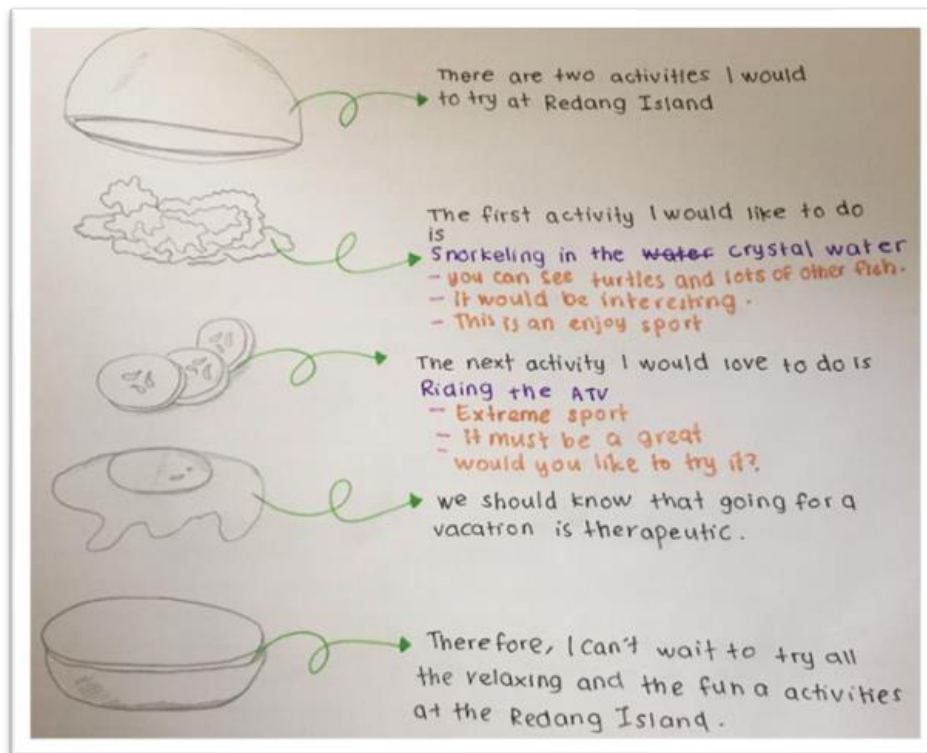 There are two activities I would
to try at Redang Island
The first activity I would like to do
is
Snorkeling in the water crystal water
- you can see turtles and lots of other fish.
- It would be interesting.
- This is an enjoy sport
The next activity I would love to do is
Riding the ATV
- Extreme sport
- It must be a great
- would you like to try it?
we should know that going for a
vacation is therapeutic.
Therefore, I can't wait to try all
the relaxing and the fun a activities
at the Redang Island.